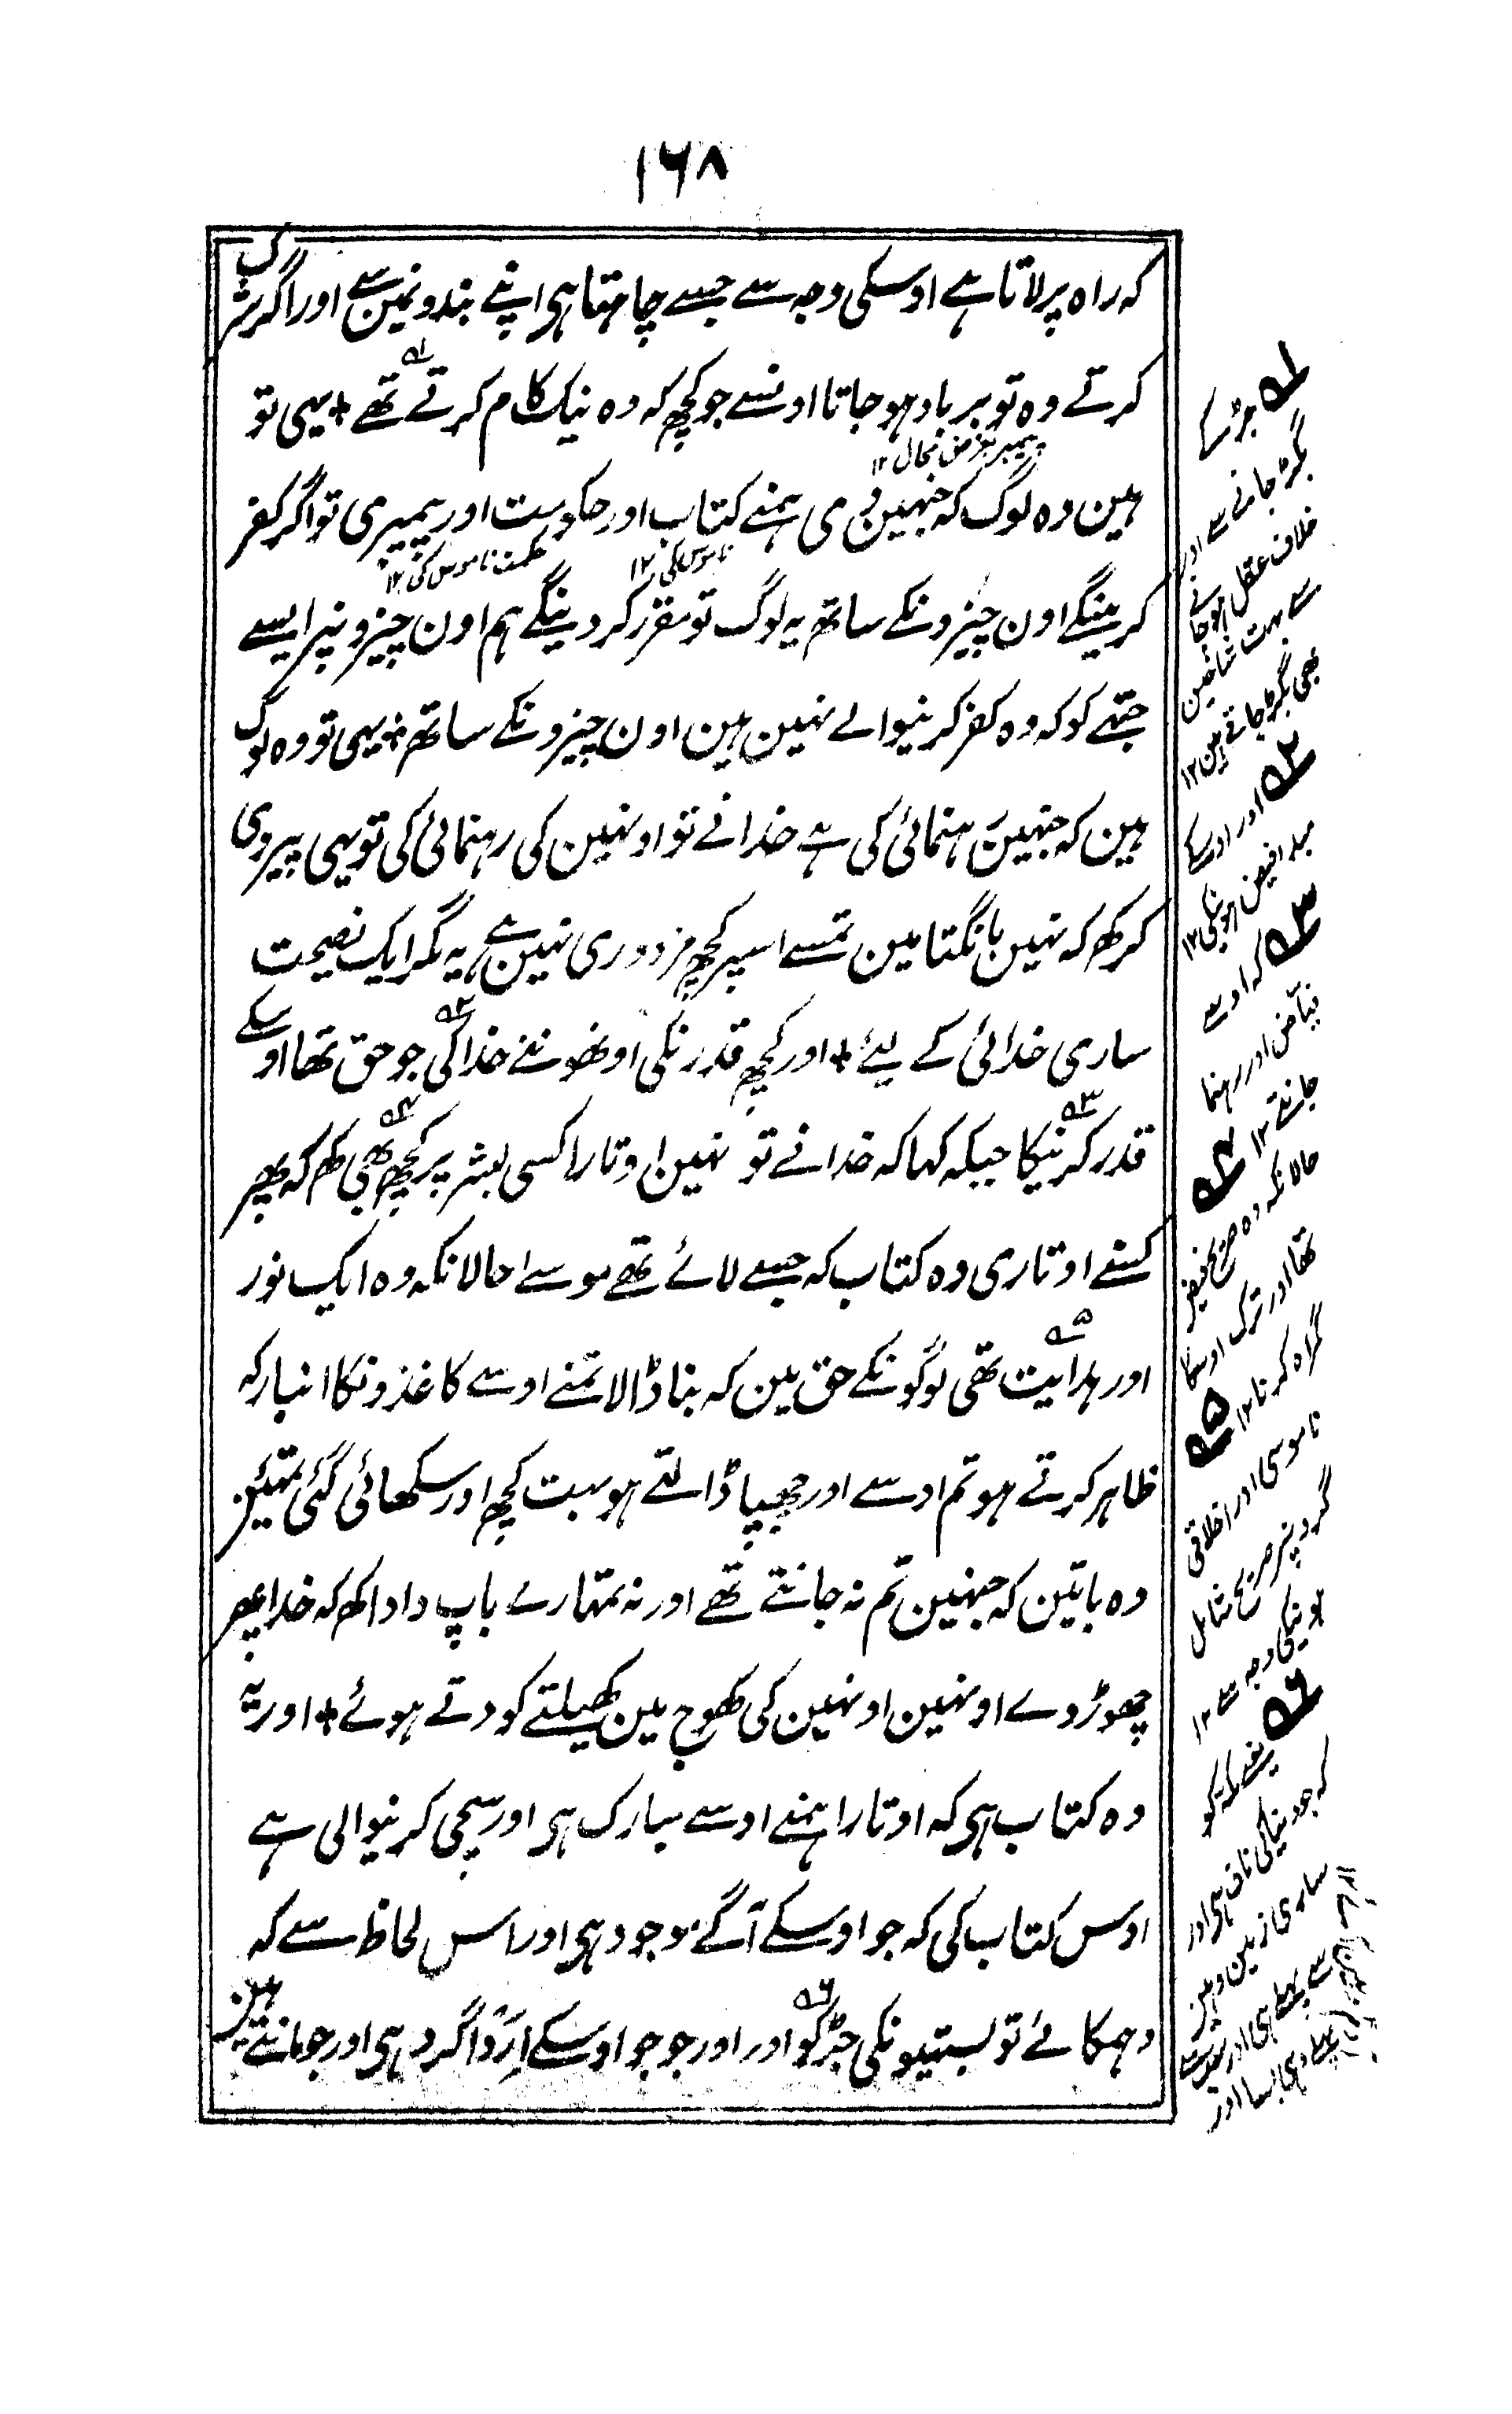 ۱۶۸
که راه پر لاتا ہے اوسکی وجہ سے جسے چاہتا ہی اپنے بندونمین سے اور اگر شرک
کرتے وہ تو برباد ہو جاتا اونسے جو کچھ کہ وہ نیک کام کرتے تھے + یہی تو
ہین وہ لوگ کہ جنہین دی ہمنے کتاب اور حکومت اور پیمبری تو اگر کفر
کرینگے اون چیزونکے ساتھ یہ لوگ تو مقرر کر دینگے ہم اون چیزونپر ایسے
جتھے کو کہ وہ کفر کرنیوالے نہین ہین اون چیزونکے ساتھ + یہی تو وہ لوگ
ہین کہ جنہین رہنمائی کی ہے خدا نے تو اونہین کی رہنمائی کی تو یہی پیروی
کر کھ کہ نہین مانگتا مین تمسے اسپر کچھ مزدوری نہین ہے یہ مگر ایک نصیحت
ساری خدائی کے لیئے + اور کچھ قدر نکی اونھوننے خدا کی جو حق تھا اوسکے
قدر کرنیکا جبکہ کہا کہ خدا نے تو نہین اوتارا کسی بشر پر کچھ بھی کھ کہ پھر
کسنے اوتاری وہ کتاب کہ جسے لائے تھے موسے احالانکہ وہ ایک نور
اور ہدایت تھی لوگونکے حق مین کہ بنا ڈالا تمنے اوسے کاغذونکا انبار کہ
ظاہر کرتے ہو تم اوسے اور چھپا ڈالتے ہو بہت کچھ اور سکھائی گئی تمہین
وہ باتین کہ جنہین تم نہ جانتے تھے اور نہ تمہارے باپ دادا کھ کہ خدا پھر
چھوڑ دے اونہین اونہین کی کھوج مین کھیلتے کودتے ہوئے + اور یہ
وہ کتاب ہی کہ اوتارا ہمنے اوسے مبارک ہی اور سچی کرنیوالی ہے
اوس کتاب کی کہ جو اوسکے آگے موجود ہی اور اس لحاظ سے کہ
دہمکائے تو بستیونکی جڑ کو اور اور جو جو اوسکے اِردا گرد ہی اور جو مانتے ہین
۹۱ جڑ کے
بگڑ جانے سے اور
خلاف عقل ہو جانے
سے بہت شاخین
بھی بگڑ جاتے ہین ۱۲
۹۲ اور اوسکے
مبدا فیض ہونیکی ۱۲
۹۳ کہ اوسے
فیاض اور رہنما
جانتے ۱۲
۹۴
حالانکہ وہ
تھا اور ترک اوسکا
گمراہ کرنا ۱۲
۹۵
ناموسی اور اخلاقی
ہونیکی وجہ سے ۱۲
۹۶
یعنے مکہ کو
کہ جو دنیا کی ناف ہی اور
ساری زمین
سے پہلے ہی اور